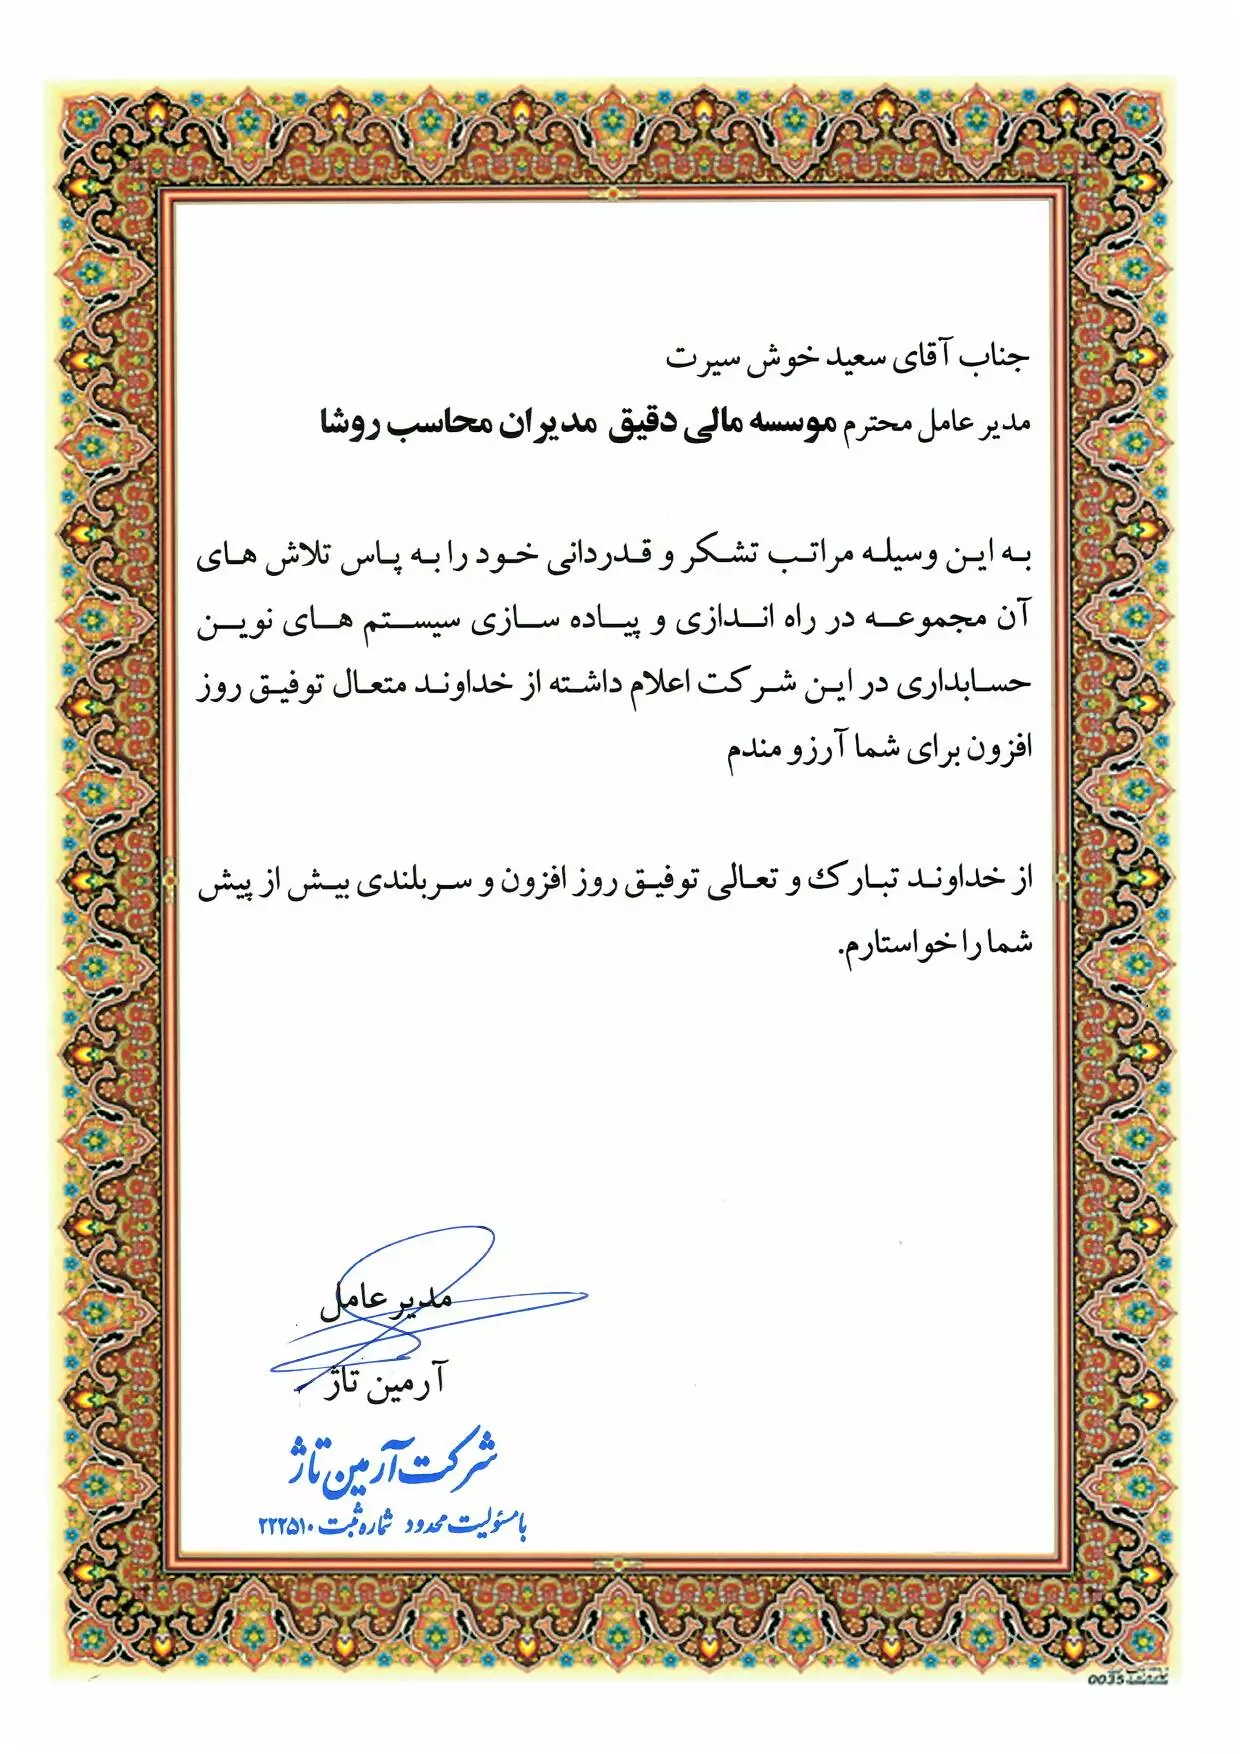 جناب آقای سعید خوش سیرت
مدیر عامل محترم موسسه مالی دقیق مدیران محاسب روشا
به این وسیله مراتب تشکر و قدردانی خود را به پاس تلاش های
آن مجموعه در راه اندازی و پیاده سازی سیستم های نوین
حسابداری در این شرکت اعلام داشته از خداوند متعال توفیق روز
افزون برای شما آرزو مندم
از خداوند تبارک و تعالی توفیق روز افزون و سربلندی بیش از پیش
شما را خواستارم.
مدیر عامل
آرمین تاژ
شرکت آرمین تاژ
با مسئولیت محدود شماره ثبت ۲۲۲۵۱۰
0035